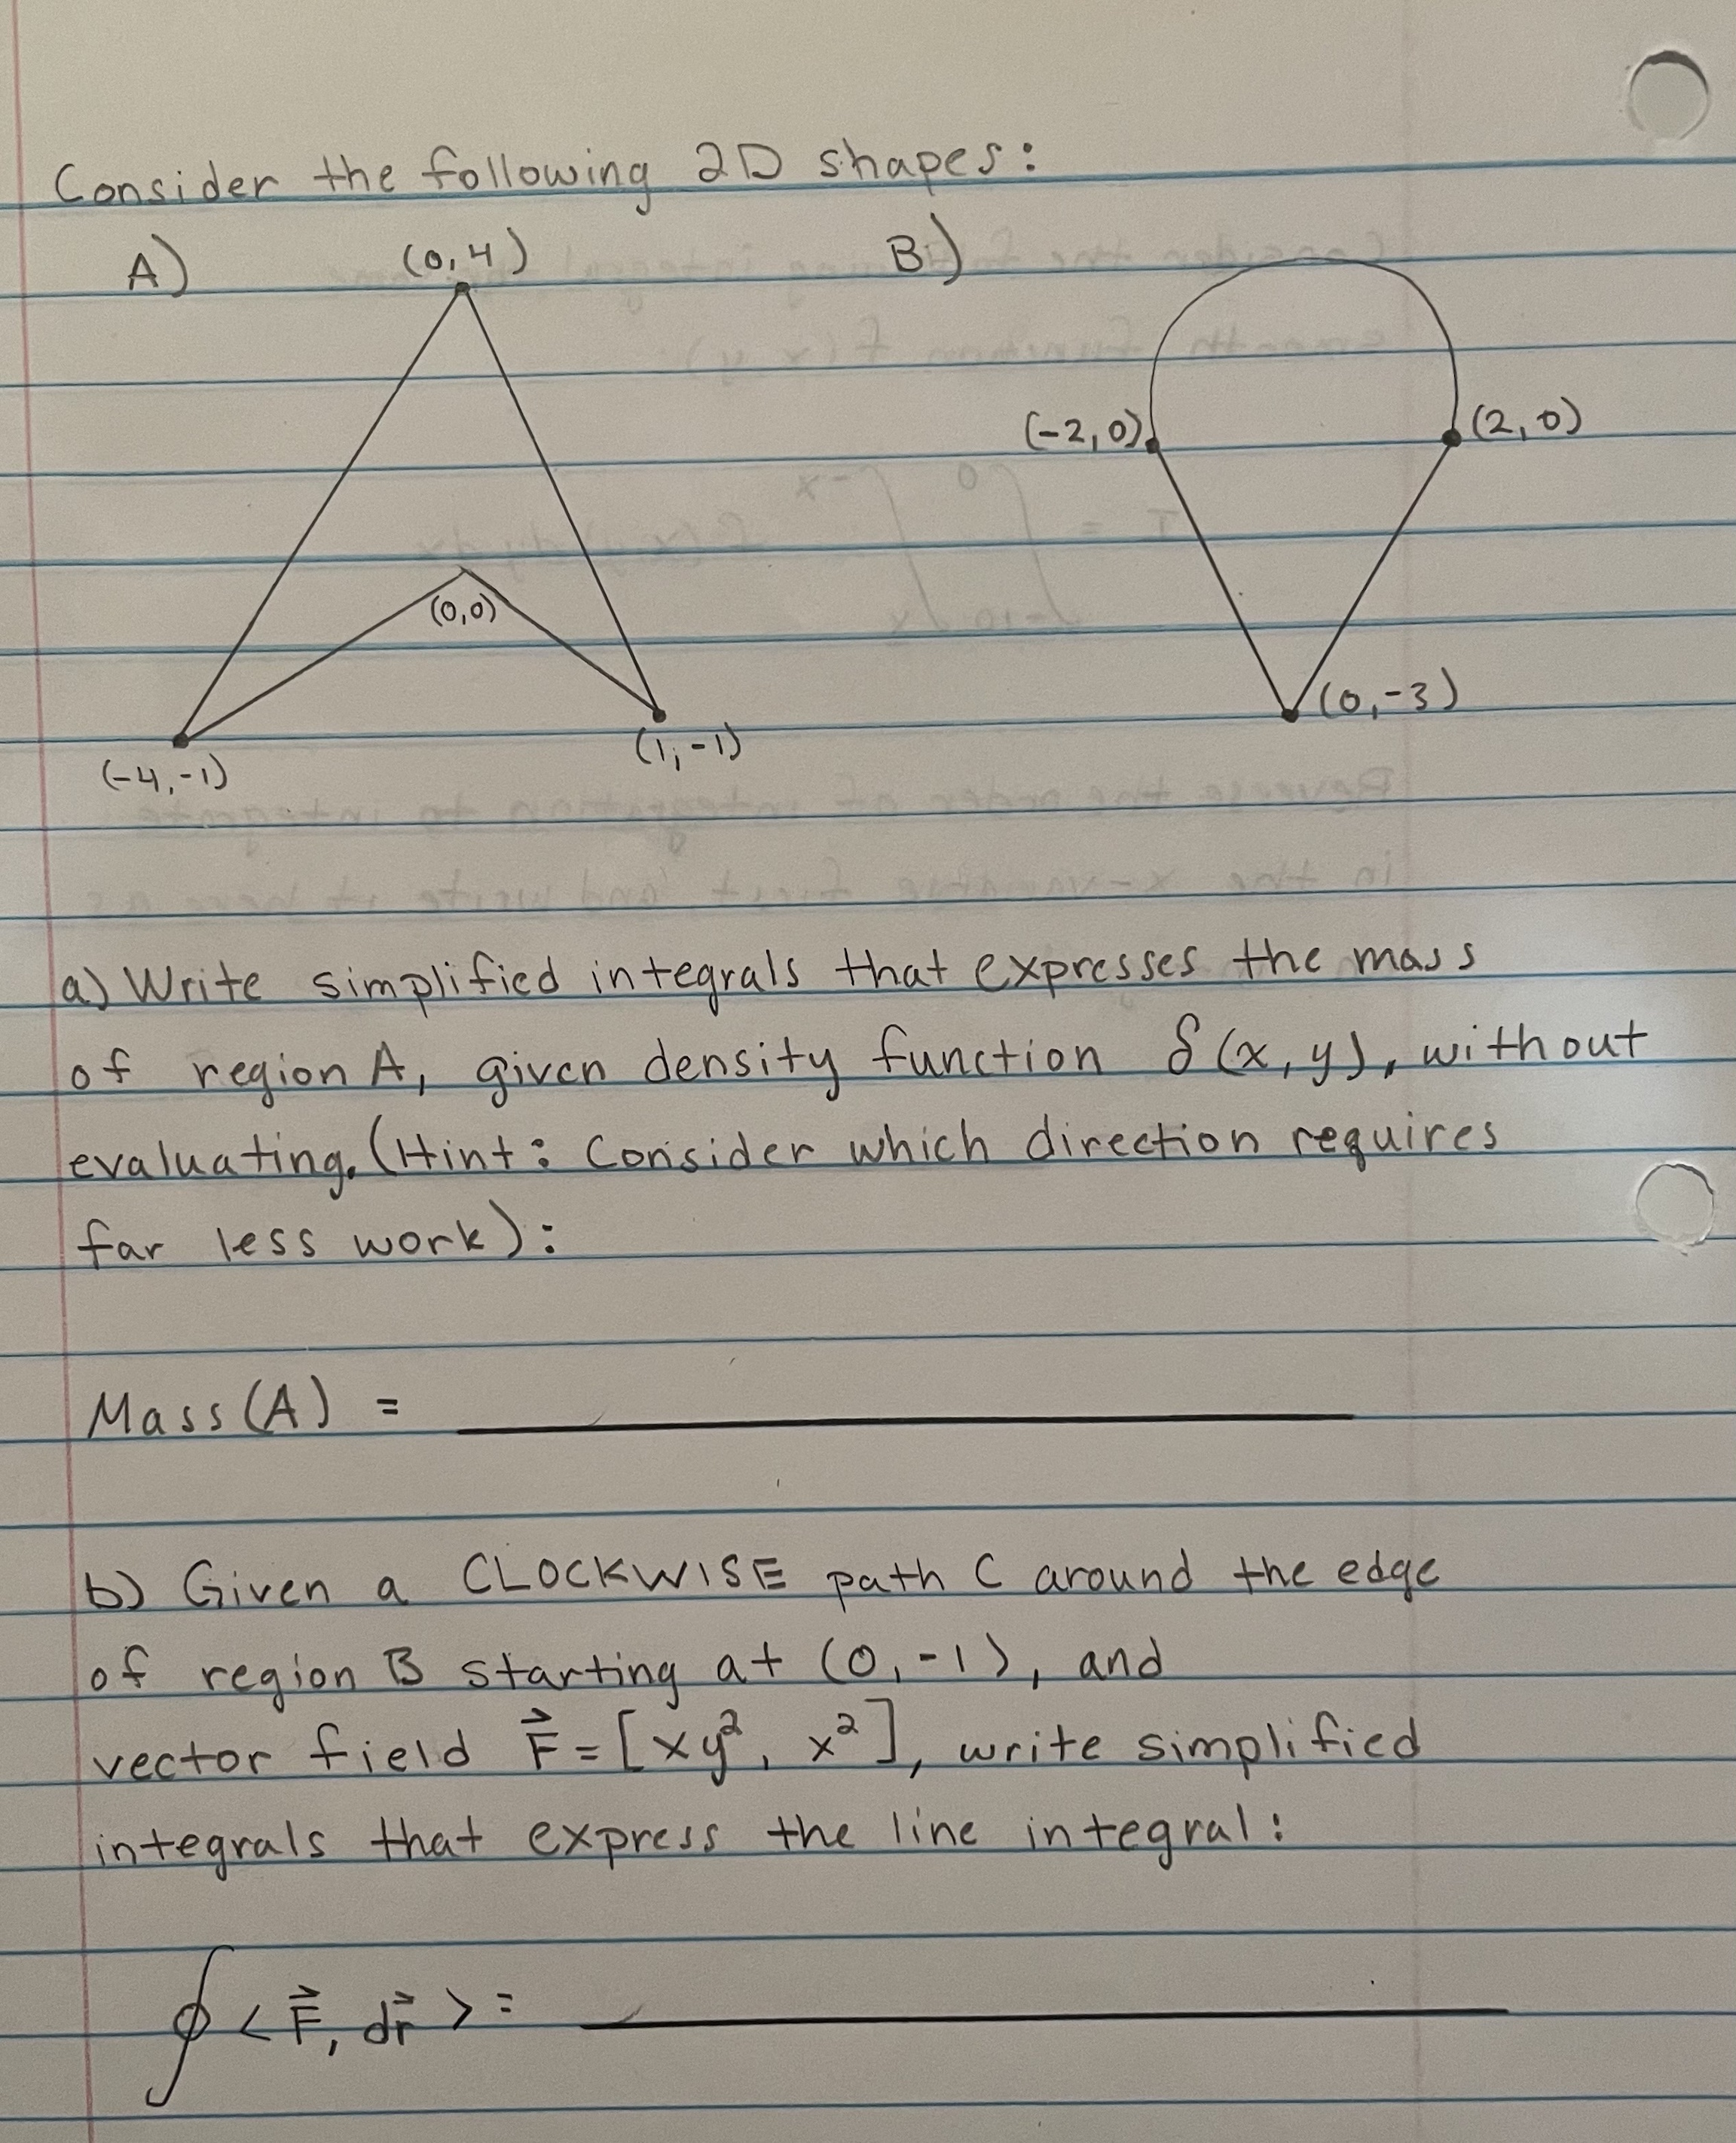 Consider the following 2D shapes:
A)
(0,4)
B)
(-2,0)
(2,0)
(0,0)
(0,-3)
(-4,-1)
(1,-1)
a) Write simplified integrals that expresses the mass
of region A, given density function δ(x,y), without
evaluating. (Hint: Consider which direction requires
far less work):
Mass(A) =
b) Given a CLOCKWISE path C around the edge
of region B starting at (0,-1), and
vector field F⃗ = [xy², x²], write simplified
integrals that express the line integral:
∮ < F⃗, dr⃗ > =